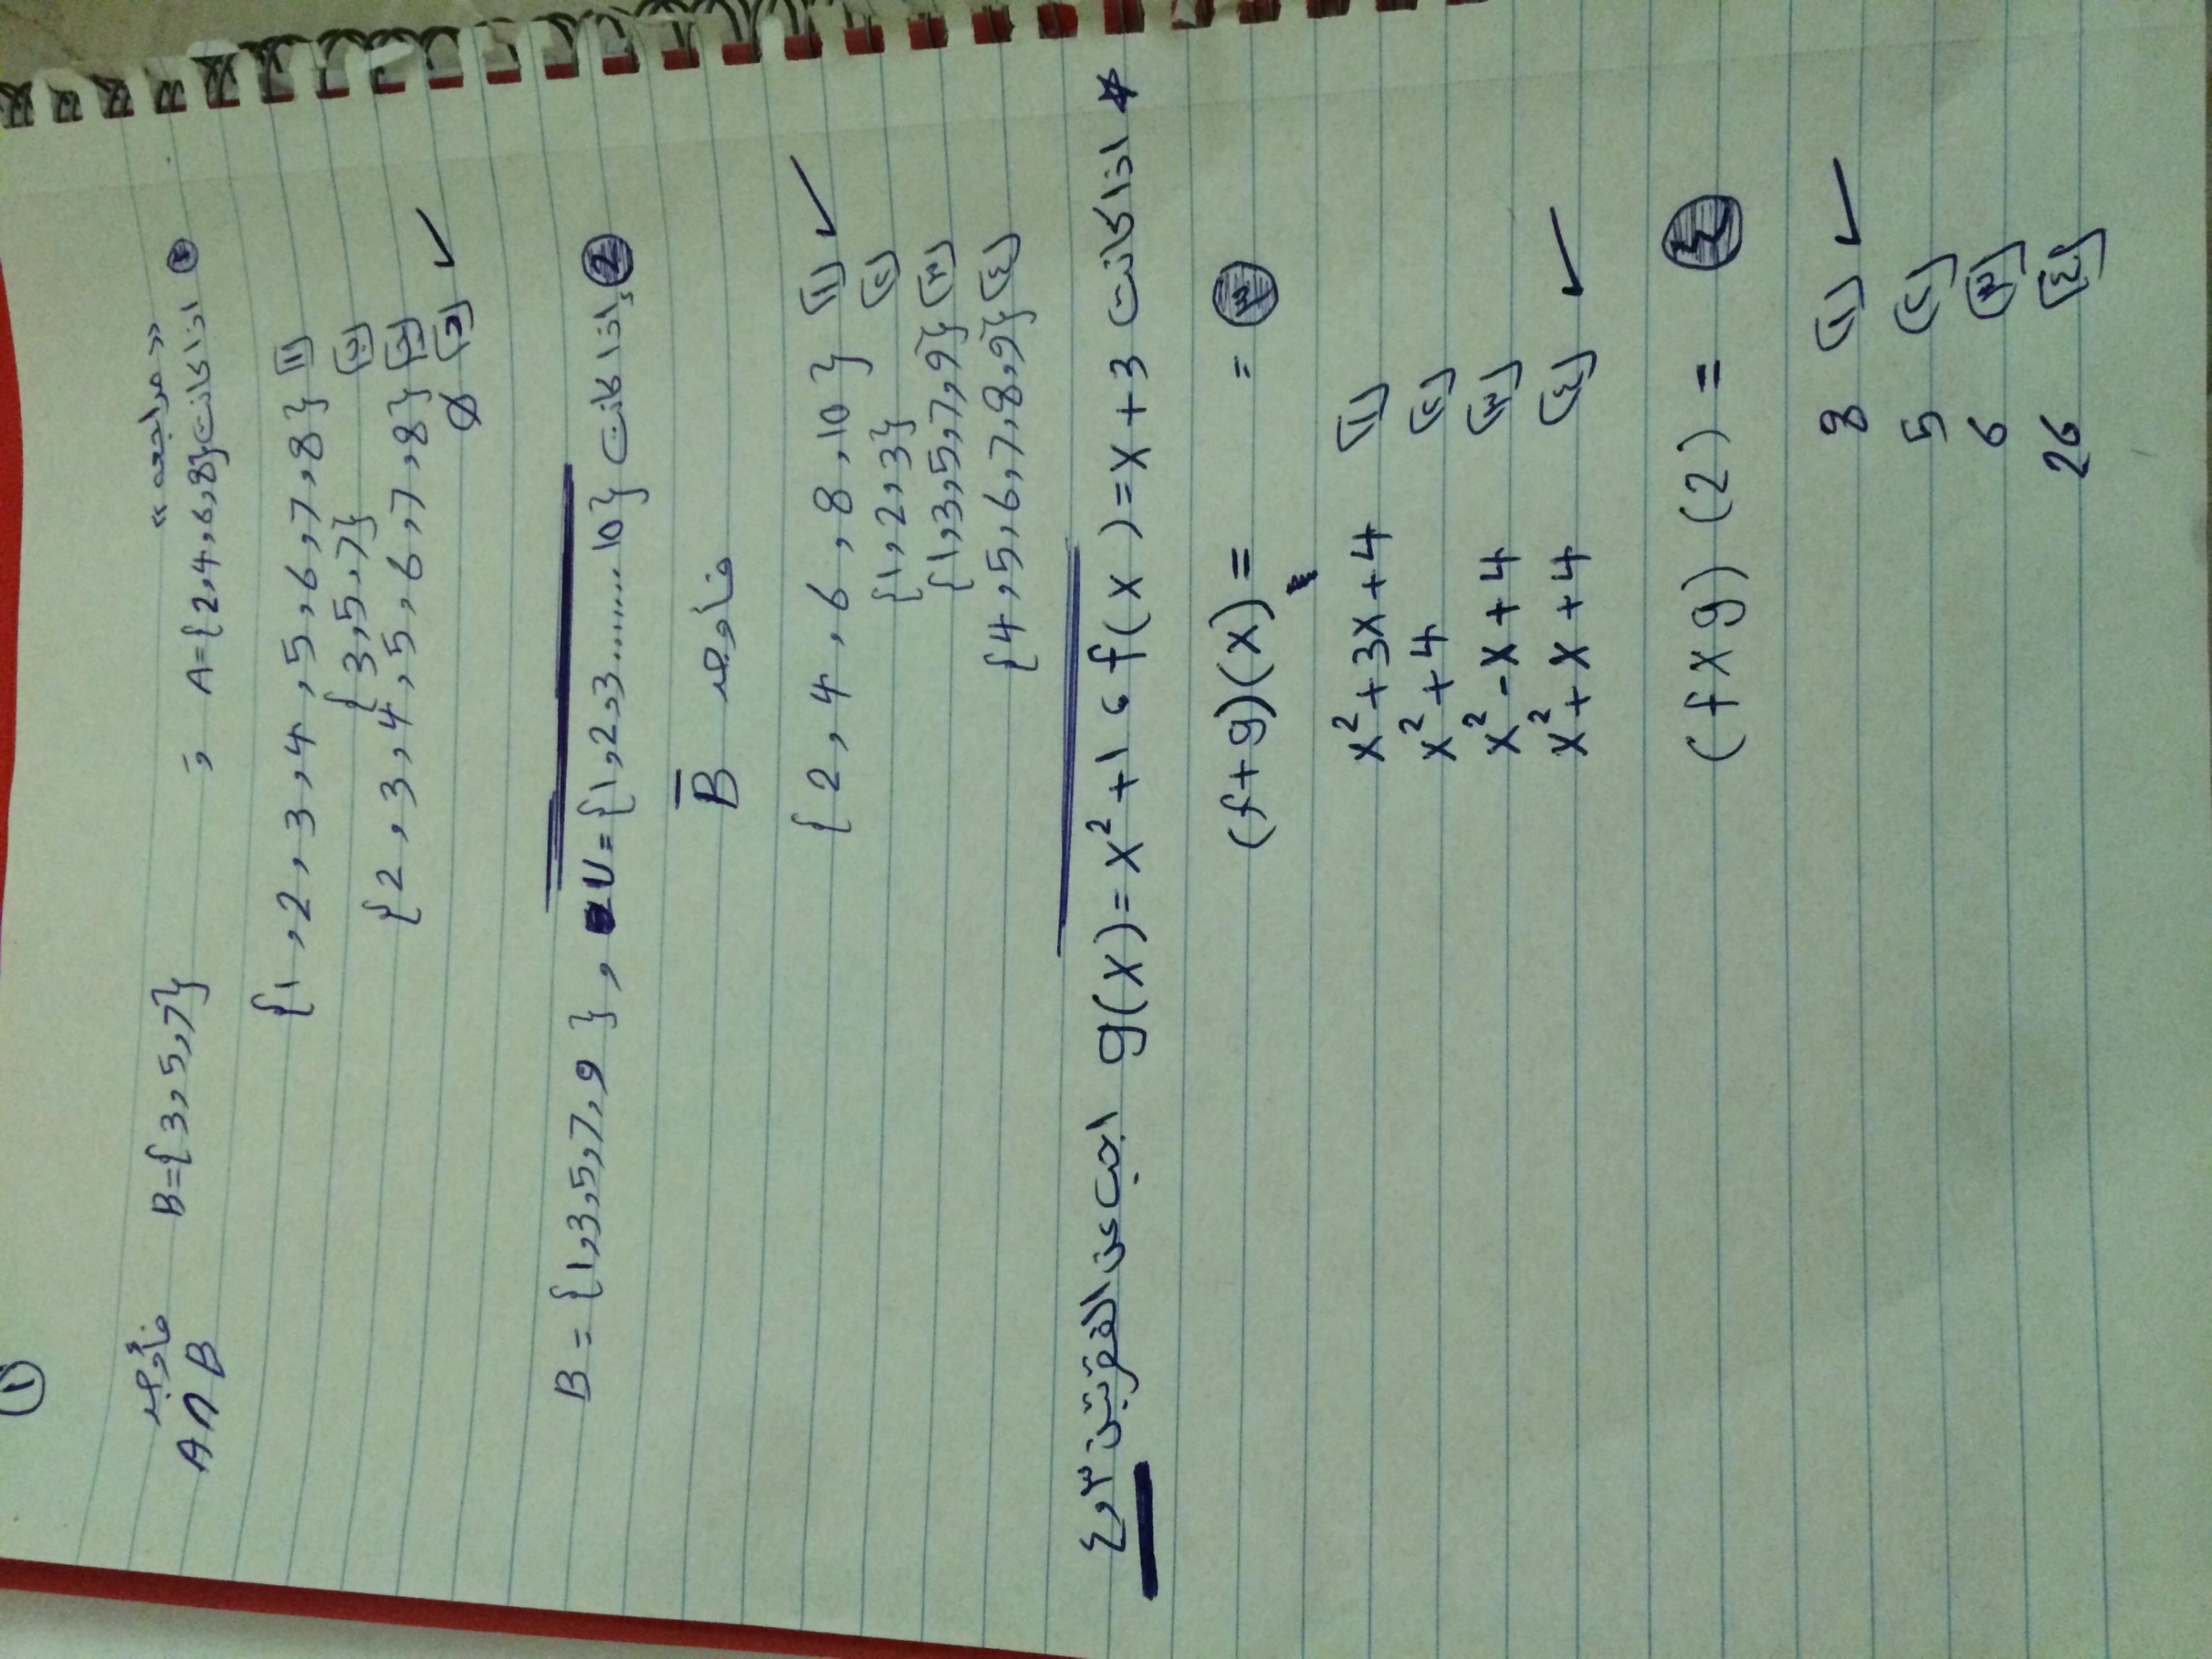 ①
« مراجعه »
① اذا كانت A={2,4,6,8} , B={3,5,7} فأوجد
A∩B
{1,2,3,4,5,6,7,8} [١]
{3,5,7} [٢]
{2,3,4,5,6,7,8} [٣]
∅ [٤] ✓
② اذا كانت U={1,2,3........10} , B={1,3,5,7,9}
فأوجد B̅
{2,4,6,8,10} [١] ✓
{1,2,3} [٢]
{1,3,5,7,9} [٣]
{4,5,6,7,8,9} [٤]
* اذا كانت f(x)=x+3 ، g(x)=x²+1 اجب عن الفقرتين ٣ و ٤
③ = (f+g)(x)=
x²+3x+4 [١]
x²+4 [٢]
x²-x+4 [٣]
x²+x+4 [٤] ✓
④ (f×g)(2)=
8 [١] ✓
5 [٢]
6 [٣]
26 [٤]